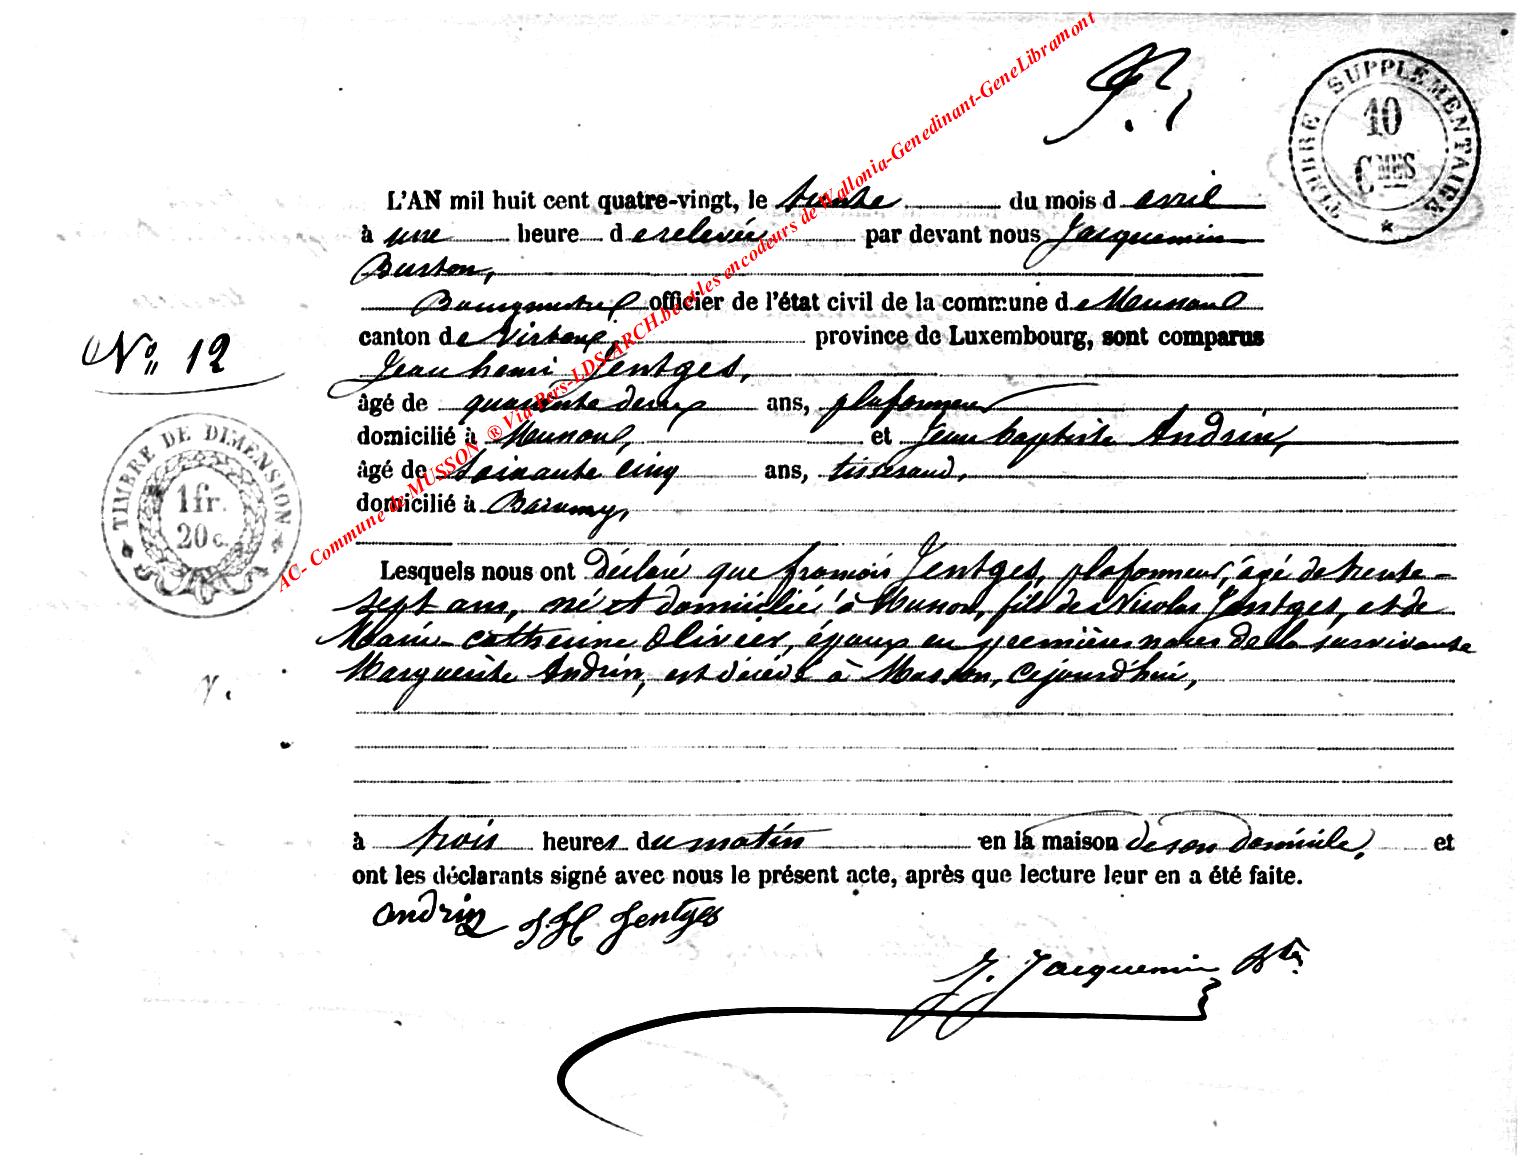 TIMBRE SUPPLÉMENTAIRE
10
CMES
L'AN mil huit cent quatre-vingt, le trente du mois d avril
à une heure de relevée par devant nous Jacquemin
Burton,
Bourgmestre officier de l'état civil de la commune de Musson
canton de Virton, province de Luxembourg, sont comparus
N° 12
Jean henri Jentges,
âgé de quarante deux ans, plafonneur
domicilié à Musson, et Jean baptiste Andrin,
âgé de soixante cinq ans, tisserand,
domicilié à Baranzy,
TIMBRE DE DIMENSION
1 fr.
20 c.
AC- Commune de MUSSON ® Via Pers-LDS-ARCH.be et les encodeurs de Wallonia-Genedinant-GeneLibramont
Lesquels nous ont déclaré que francois Jentges, plafonneur, âgé de trente-
sept ans, né et domicilié à Musson, fils de Nicolas Jentges, et de
Marie-catherine Olivier, époux en premières noces de la survivante
Marguerite Andrin, est décédé à Musson, cejourd'hui,
à trois heures du matin en la maison de son domicile, et
ont les déclarants signé avec nous le présent acte, après que lecture leur en a été faite.
Andrin J. H Jentges
J. Jacquemin Btn